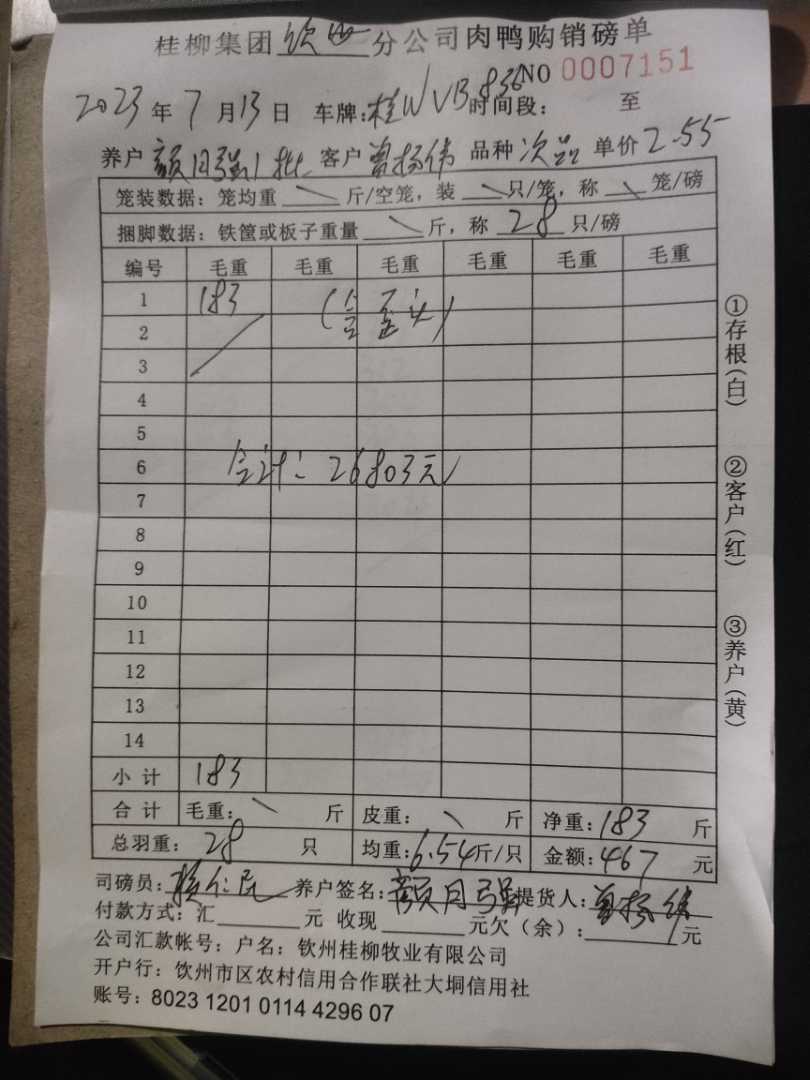 桂柳集团 钦州 分公司肉鸭购销磅单
NO 0007151
2023 年 7 月 13 日 车牌:桂WVB836 时间段: 至
养户 颜月强1批 客户 曾杨伟 品种 次品 单价 2.55
笼装数据:笼均重 \ 斤/空笼,装 \ 只/笼,称 \ 笼/磅
捆脚数据:铁筐或板子重量 \ 斤,称 28 只/磅
编号 毛重 毛重 毛重 毛重 毛重 毛重
1 183 (含歪头)
2
3
4
5
6 合计:26803元
7
8
9
10
11
12
13
14
小计 183
合计 毛重: \ 斤 皮重: \ 斤 净重:183 斤
总羽重: 28 只 均重:6.54斤/只 金额:467 元
司磅员: 养户签名:颜月强 提货人:曾杨伟
付款方式:汇 元 收现 元欠(余): 元
公司汇款帐号:户名:钦州桂柳牧业有限公司
开户行:饮州市区农村信用合作联社大垌信用社
账号:8023 1201 0114 4296 07
①存根(白)
②客户(红)
③养户(黄)